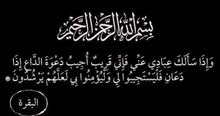 بسم الله الرحمن الرحيم
وَإِذَا سَأَلَكَ عِبَادِي عَنِّي فَإِنِّي قَرِيبٌ أُجِيبُ دَعْوَةَ الدَّاعِ إِذَا
دَعَانِ فَلْيَسْتَجِيبُوا لِي وَلْيُؤْمِنُوا بِي لَعَلَّهُمْ يَرْشُدُونَ
البقرة